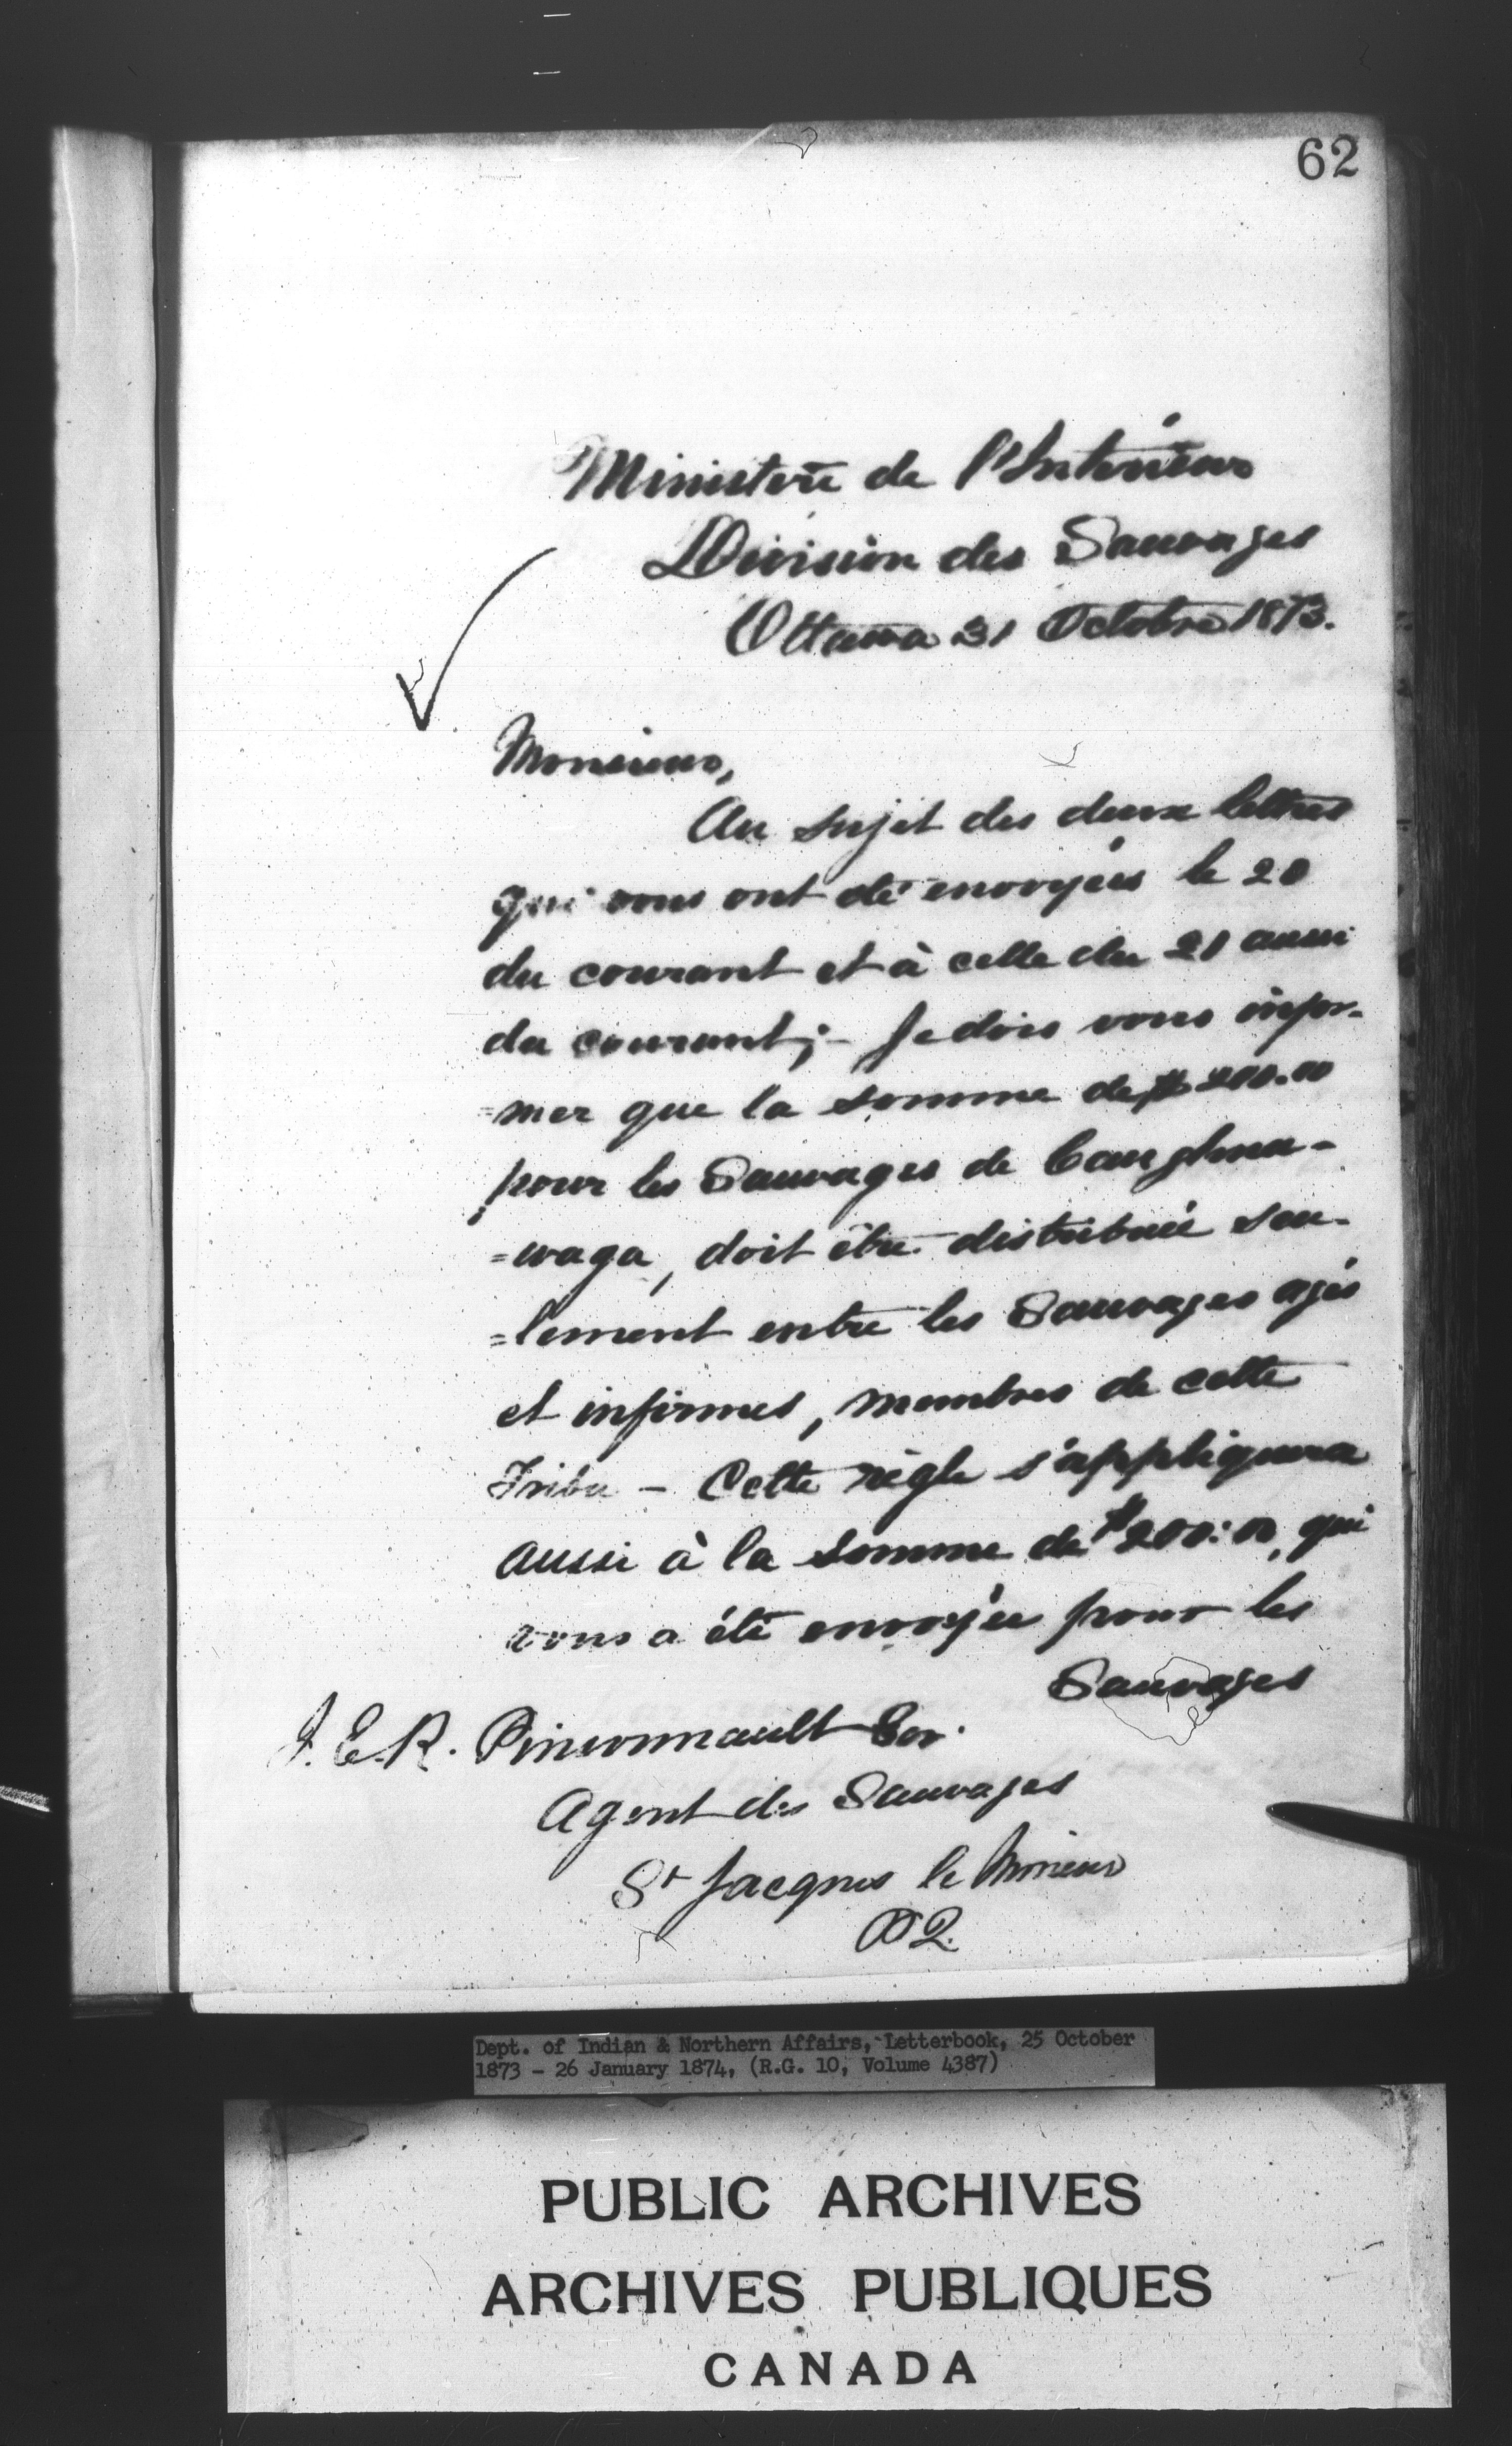 62
Ministère de l'Intérieur
Division des Sauvages
Ottawa 31 Octobre 1873.
Monsieur,
Au sujet des deux lettres
qui vous ont été envoyées le 20
du courant et à celle du 21 aussi
du courant; - Je dois vous infor-
=mer que la somme de $200.00
pour les Sauvages de Caughna-
=waga, doit être distribuée seu-
=lement entre les Sauvages agés
et infirmes, membres de cette
Tribu - Cette règle s'appliquera
aussi à la somme de $200:00, qui
vous a été envoyée pour les
Sauvages
J. E. R. Pinsonnault Ecr.
Agent des Sauvages
St Jacques le Mineur
P Q.
Dept. of Indian & Northern Affairs, Letterbook, 25 October
1873 - 26 January 1874, (R.G. 10, Volume 4387)
PUBLIC ARCHIVES
ARCHIVES PUBLIQUES
CANADA